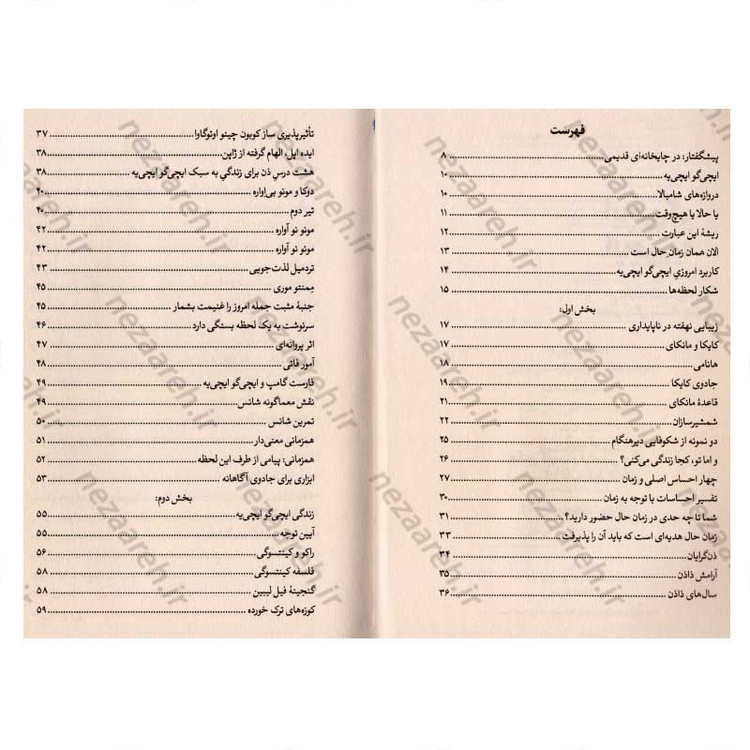 فهرست
پیشگفتار: در چایخانه‌ای قدیمی ۸
ایچی‌گو ایچی‌یه ۱۰
دروازه‌های شامبالا ۱۰
یا حالا یا هیچ‌وقت ۱۱
ریشهٔ این عبارت ۱۲
الان همان زمان حال است ۱۳
کاربرد امروزی ایچی‌گو ایچی‌یه ۱۴
شکار لحظه‌ها ۱۵
بخش اول:
زیبایی نهفته در ناپایداری ۱۷
کایکا و مانکای ۱۷
هانامی ۱۸
جادوی کایکا ۱۹
قاعدهٔ مانکای ۲۱
شمشیرسازان ۲۲
دو نمونه از شکوفایی دیرهنگام ۲۵
و اما تو، کجا زندگی می‌کنی؟ ۲۶
چهار احساس اصلی و زمان ۲۷
تفسیر احساسات با توجه به زمان ۳۰
شما تا چه حدی در زمان حال حضور دارید؟ ۳۱
زمان حال هدیه‌ای است که باید آن را پذیرفت ۳۳
ذن‌گرایان ۳۴
آرامش ذاذن ۳۵
سال‌های ذاذن ۳۶
تأثیرپذیری ساز کوبون چینو اوتوگاوا ۳۷
ایده اپل، الهام گرفته از ژاپن ۳۸
هشت درسِ ذن برای زندگی به سبک ایچی‌گو ایچی‌یه ۳۸
دوکا و مونو نو آواره ۴۰
تیر دوم ۴۰
مونو نو آواره ۴۲
مونو نو آواره ۴۲
تردمیل لذت‌جویی ۴۳
مِمنتو موری ۴۵
جنبهٔ مثبت جمله امروز را غنیمت بشمار ۴۵
سرنوشت به یک لحظه بستگی دارد ۴۶
اثر پروانه‌ای ۴۷
آمور فاتی ۴۸
فارست گامپ و ایچی‌گو ایچی‌یه ۴۹
نقش معماگونه شانس ۴۹
تمرین شانس ۵۰
همزمانی معنی‌دار ۵۱
همزمانی: پیامی از طرف این لحظه ۵۲
ابزاری برای جادوی آگاهانه ۵۳
بخش دوم:
زندگی ایچی‌گو ایچی‌یه ۵۵
آیین توجه ۵۵
راکو و کینتسوگی ۵۶
فلسفه کینتسوگی ۵۸
گنجینهٔ فیل لیبین ۵۸
کوزه‌های ترک خورده ۵۹
nezaareh.ir